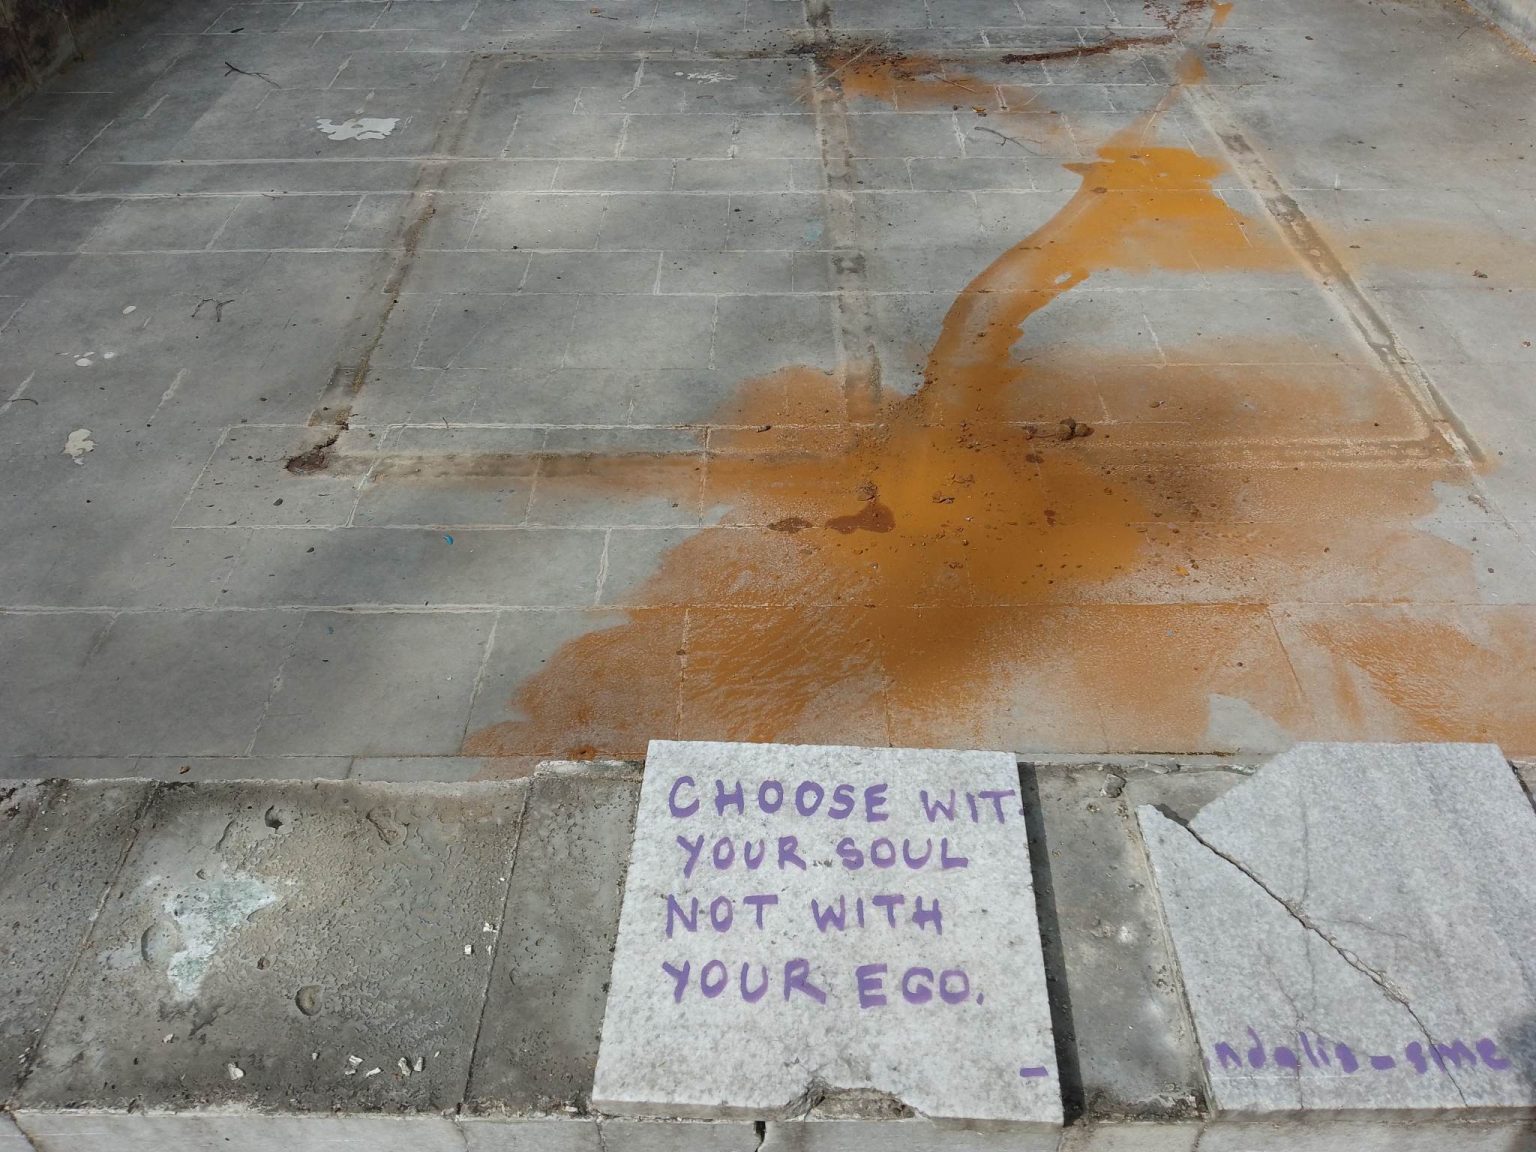 CHOOSE WIT
YOUR SOUL
NOT WITH
YOUR EGO.